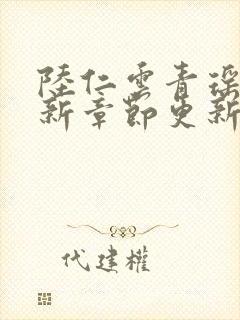 陸仁雲青瑤
新章節更新
代建權